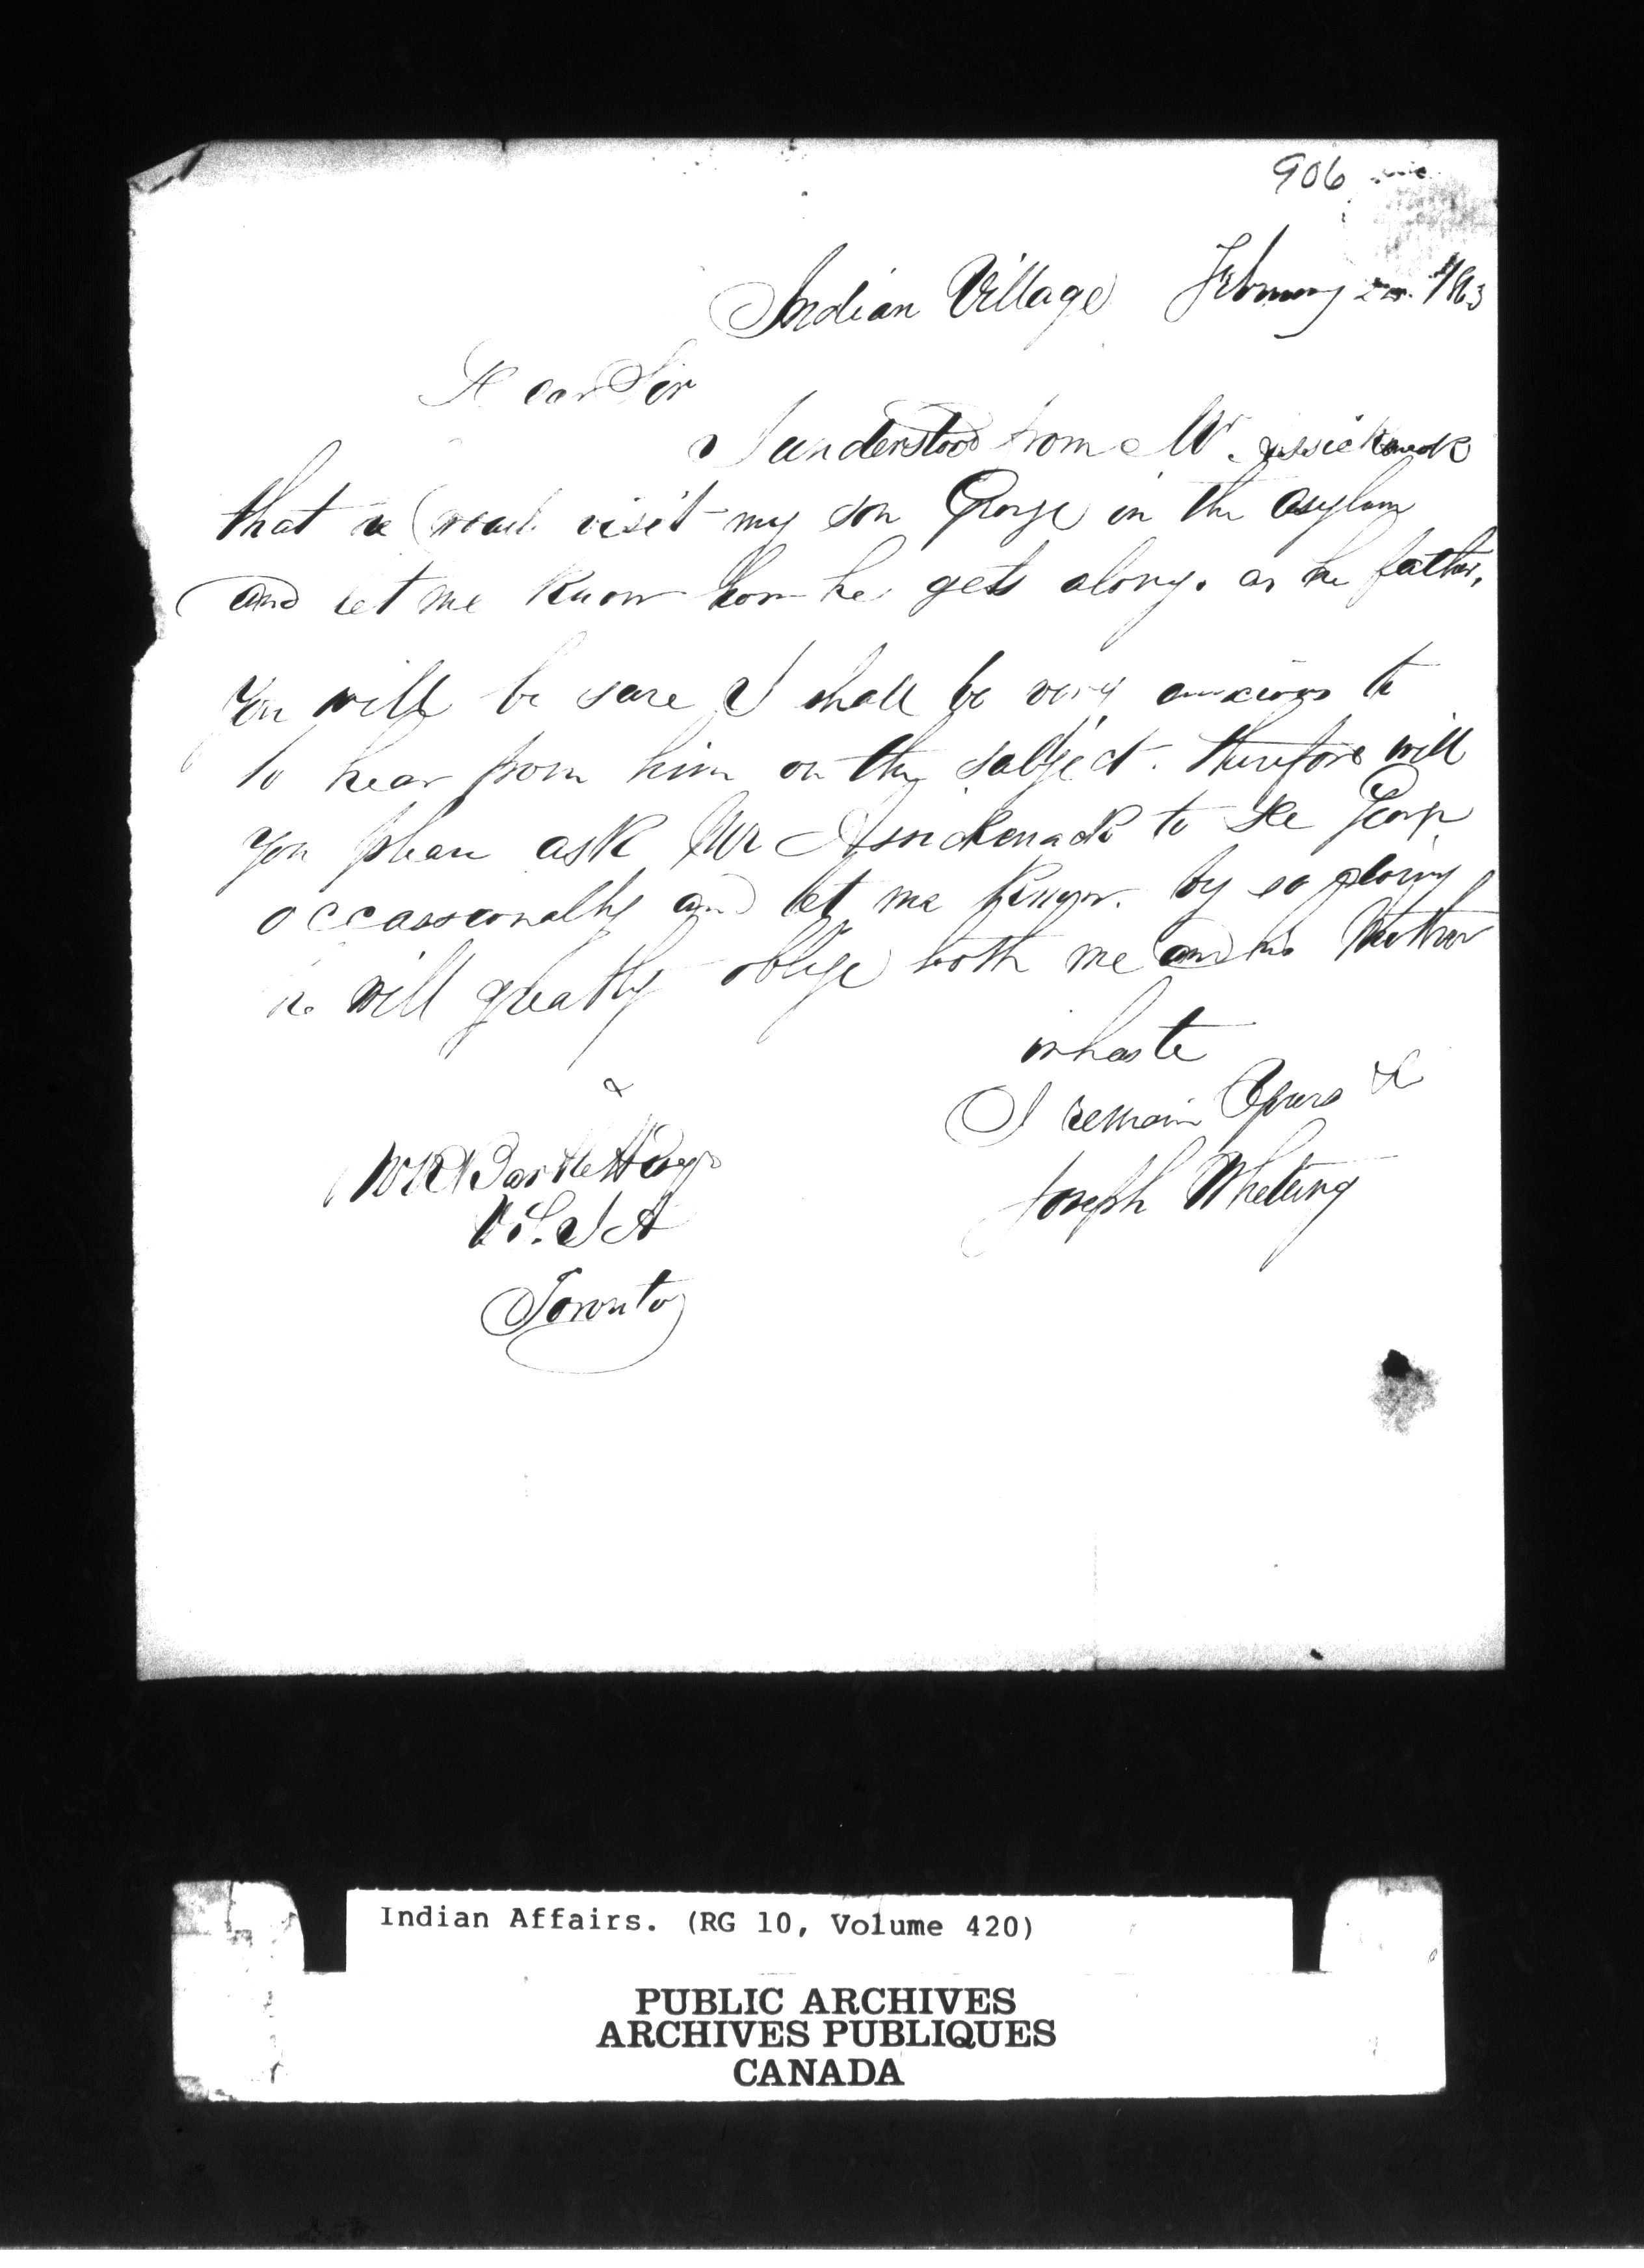 906
Indian Village February 1863
Dear Sir
I understood from Mr. Assickinack
that he would visit my son George in the asylum
and let me know how he gets along. as he father,
you will be sure I shall be very anxious to
to hear from him on the subject. therefore will
you please ask Mr Assickenack to see George
occassionally and let me know. by so doing
he will greatly oblige both me and his Mother
in haste
I remain Yours &c
Joseph Whetung
W R Bartlett Esqr
V. S. I A
Toronto
Indian Affairs. (RG 10, Volume 420)
PUBLIC ARCHIVES
ARCHIVES PUBLIQUES
CANADA